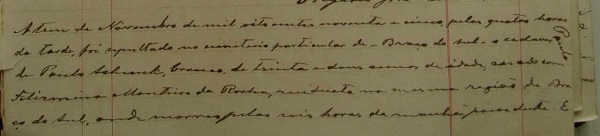 A tres de Novembro de mil oito centos noventa e cinco, pelas quatro horas
da tarde, foi sepultado no cemiterio particular de - Braço do sul - o cadaver
de Paulo Schunk, branco, de trinta e dous annos de idade, casado com
Felizmina Monteiro da Rocha, residente na mesma região de Bra
ço do Sul, onde morreu pelas seis horas da manhã, de E
Paulo